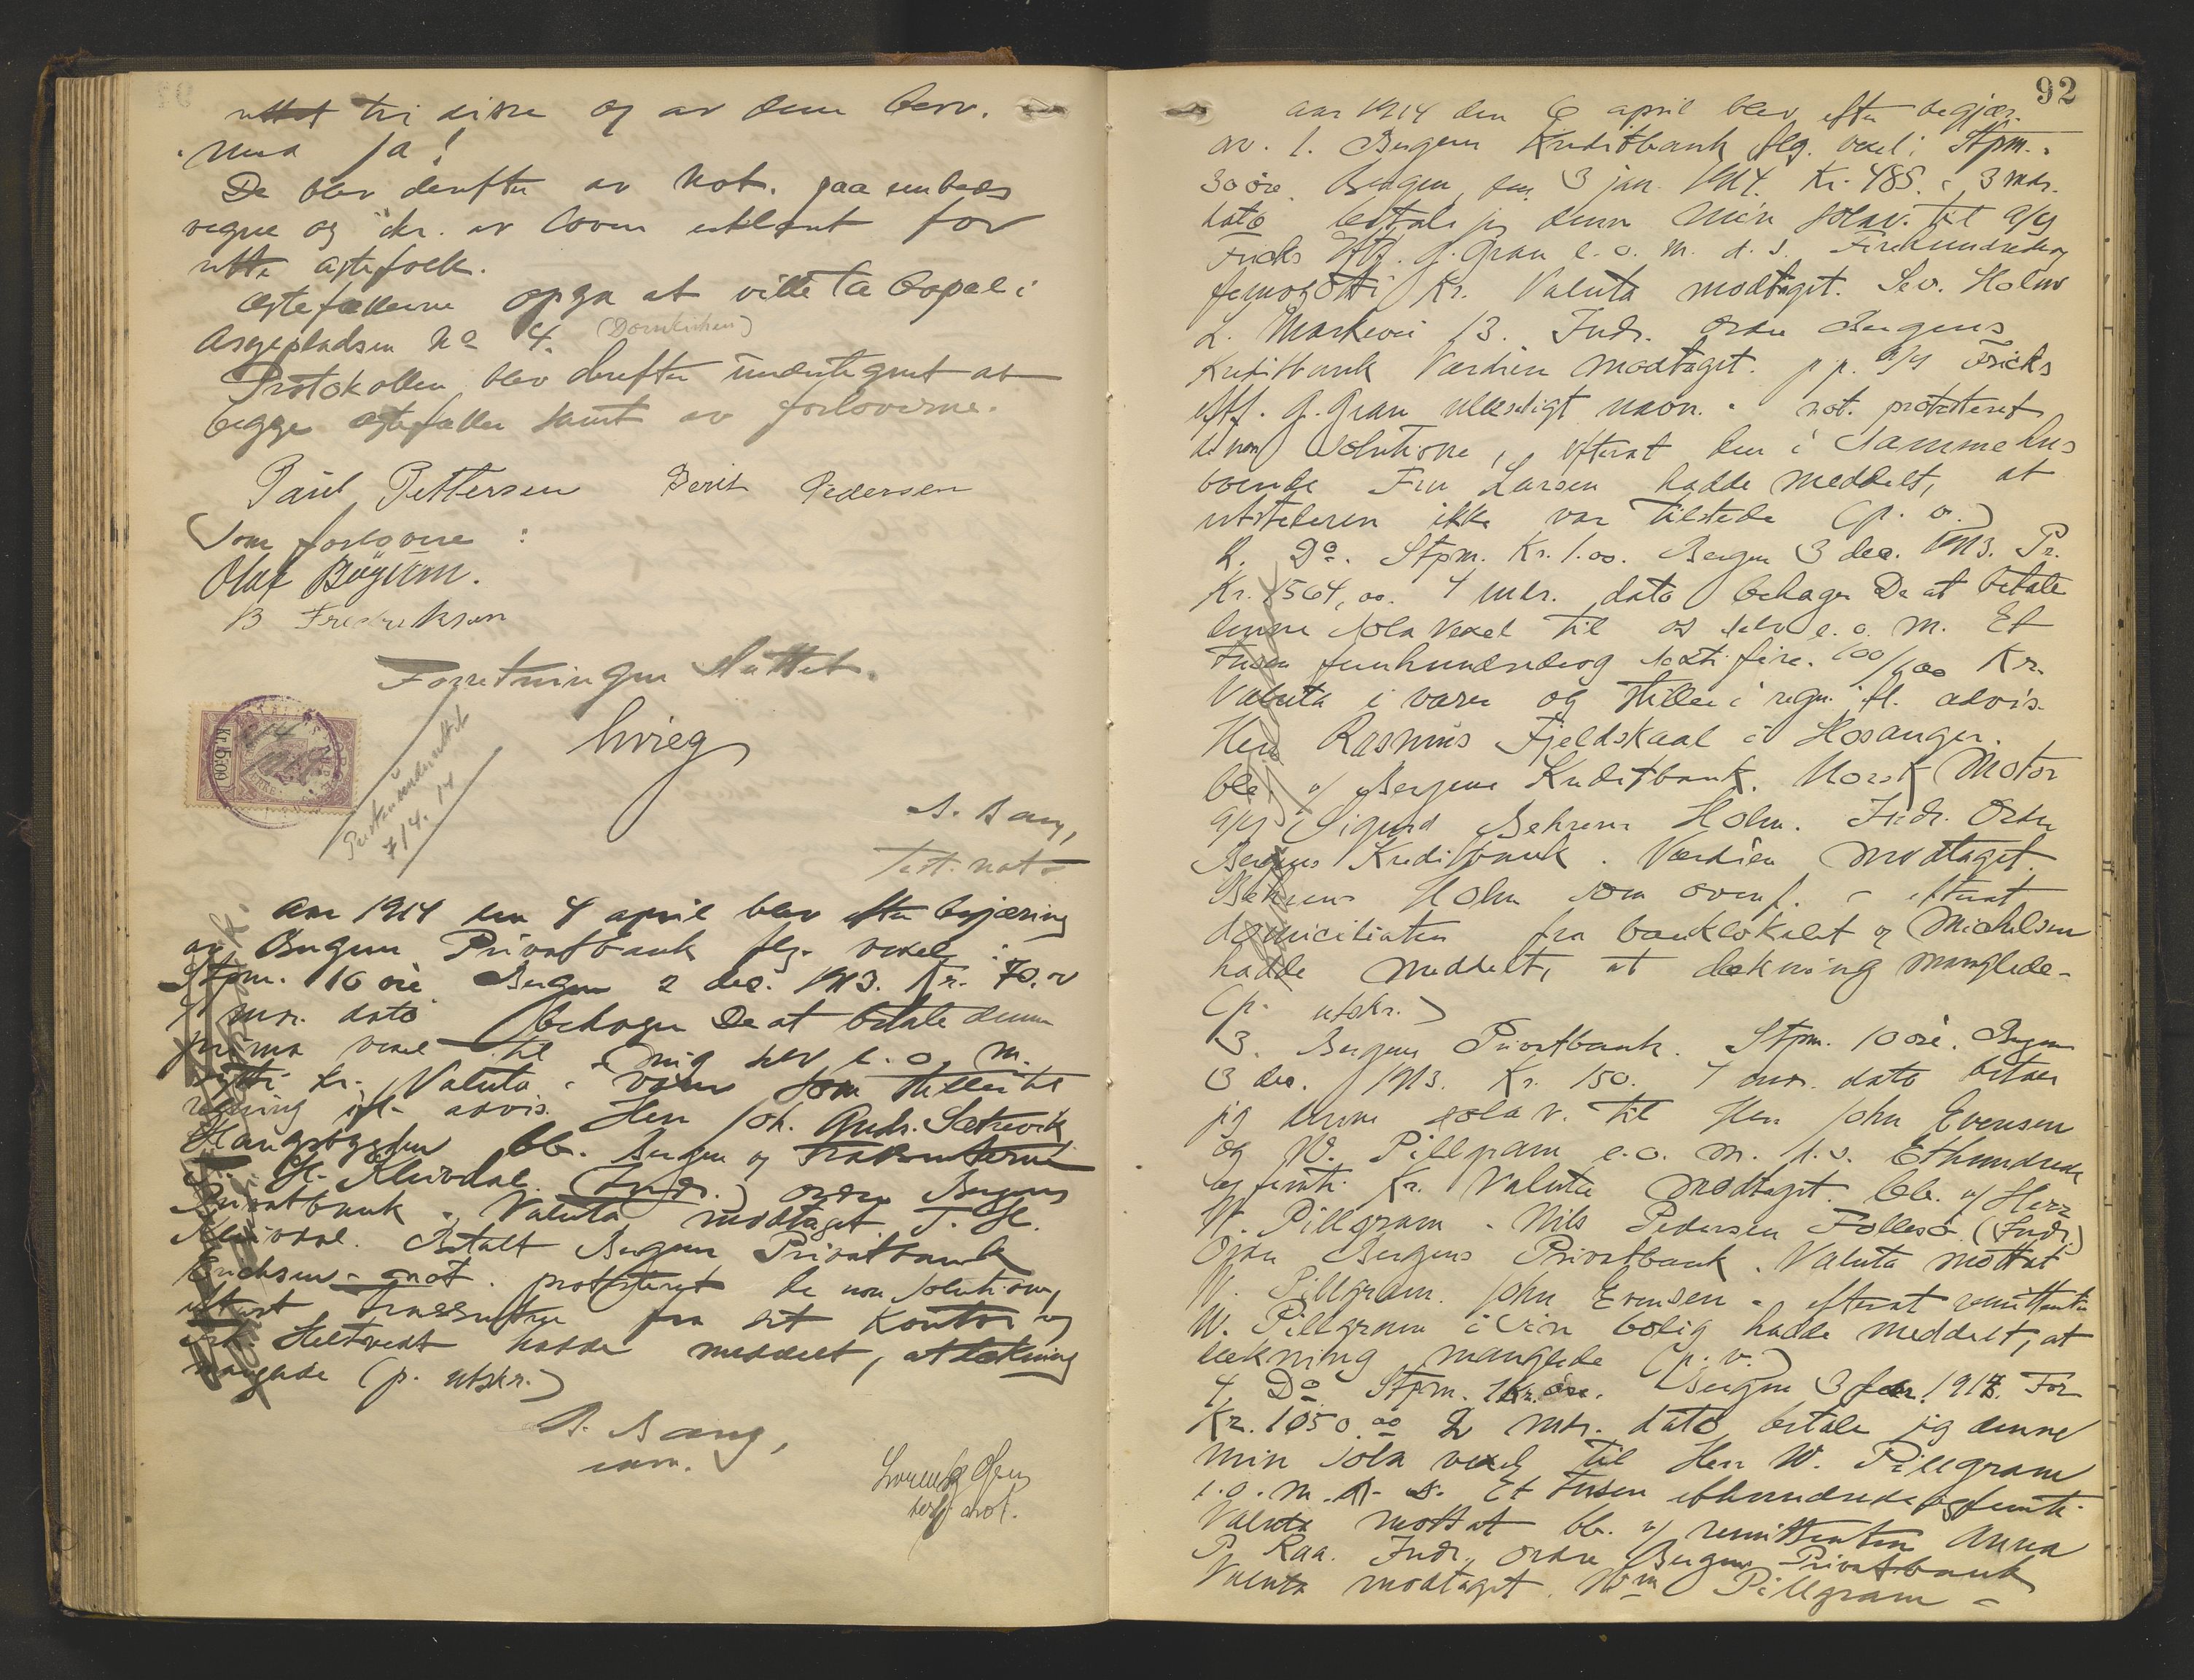 rettet til disse og av dem besv.
med ja!
De blev derefter av Not. paa embeds
vegne og ikr. av loven erklært for
rette egtefolk.
Egtefællerne opga at ville ta bopæl i
Asylpladsen No 4. (Domkirken)
Protokollen blev derefter undertegnet av
begge egtefæller samt av forloverne.
Paul Pettersen Berit Pedersen
Som forlovere:
Olaf Bøyum.
B Fredriksen
Forretningen sluttet.
Kr. 5.00
7/4. 14
A. Bang,
Test. not
Aar 1914 den 4 april blev efter begjæring
av Bergens Privatbank flg. vexel:
Stpm. 10 øre Bergen 2 dec. 1913. Kr. 70.
4 mdr. dato behager De at betale denne
prima vexel til mig selv e. o. m.
sytti kr. Valuta i varer som stilles til
regning ifl. advis. Herr Joh. Andr. Sætrevik
Haugsbygden bb. Bergen og
H. Kleivdal. (Indr.) ordre Bergens
Privatbank. Valuta modtaget T. H.
Kleivdal. Betalt Bergens Privatbank
Erichsen - not. protesteret de non solutione,
efterat trassenten fra sit kontor og
hadde meddelt, at dækning
manglede (p. utskr.)
A. Bang,
Aar 1914 den 6 april blev efter begjær.
92
av. 1. Bergens Kreditbank flg. vexel: Stpm.
30 øre. Bergen, den 3 jan. 1914. Kr. 485. 3 mdr.
dato betaler jeg denne min solav. til A/S
Fricks Eftf. G. Gran e. o. m. d. s. Firehundredeog
femogotti Kr. Valuta modtaget. Sev. Holm
L. Markevei 13. Indr. Ordre Bergens
Kreditbank Værdien modtaget. p.p. A/S Fricks
Eftf. G. Gran ulæseligt navn. - not. protesteret
de non solutione, efterat den i samme hus
boende Fru Larsen hadde meddelt, at
utstederen ikke var tilstede (p. v.)
2. Do. Stpm. Kr. 1.00. Bergen 3 dec. 1913. Pr.
Kr. 1564,00. 4 mdr. dato behager De at betale
denne sola vexel til os selv e. o. m. Et
tusen femhundredeog sextifire. 00/100 Kr.
Valuta i varer og stilles i regn. ifl. advis.
Herr Rasmus Fjeldskaal i Hosanger.
bb. v/ Bergens Kreditbank. Norsk Motor
A/S Sigurd Behrens Holm. Indr. Ordre
Bergens Kreditbank. Værdien modtaget.
Behrens Holm som ovenf. - efterat
domiciliaten fra banklokalet v/ Michelsen
hadde meddelt, at dækning manglede.
(p. utskr.)
3. Bergens Privatbank. Stpm. 10 øre. Bergen
3 dec. 1913. Kr. 150. 4 mdr. dato betaler
jeg denne sola v. til Herr John Evensen
og W. Pillgram e. o. m. d. s. Ethundrede
og femti Kr. Valuta modtaget. bb. v/ Herr
W. Pillgram. Nils Pedersen Follesø. (Indr.)
Ordre Bergens Privatbank. Valuta mottat
W. Pillgram. John Evensen - efterat remittenten
W. Pillgram i sin bolig hadde meddelt, at
dækning manglede (p. v.)
4. Do Stpm. 1 Kr. Bergen 3 1914. For
Kr. 1050.00 2 mdr. dato betaler jeg denne
min sola vexel til Herr W. Pillgram
e. o. m. d. s. Et tusen femti
Valuta mottat bb. v/ remittenten Anna
P. Raa. Indr. ordre Bergens Privatbank
Valuta modtaget. Wm Pillgram -